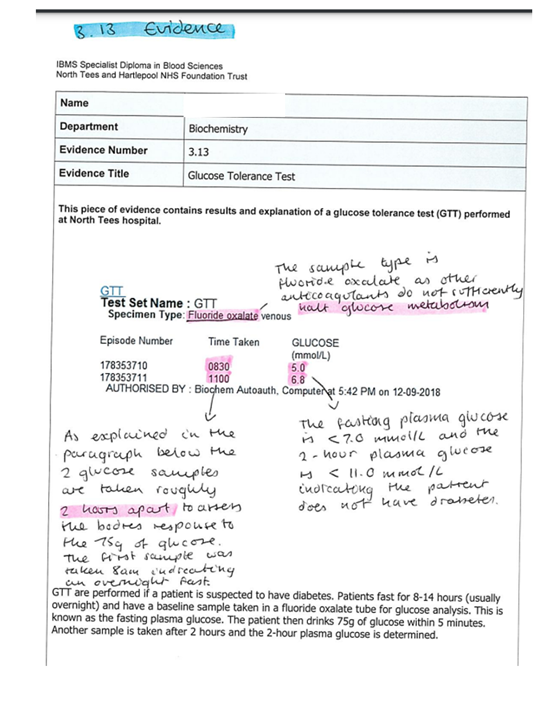 3.13 Evidence
IBMS Specialist Diploma in Blood Sciences
North Tees and Hartlepool NHS Foundation Trust
Name
Department Biochemistry
Evidence Number 3.13
Evidence Title Glucose Tolerance Test
This piece of evidence contains results and explanation of a glucose tolerance test (GTT) performed
at North Tees hospital.
The sample type is
fluoride oxalate as other
anticoagulants do not sufficiently
halt glucose metabolism
GTT
Test Set Name : GTT
Specimen Type: Fluoride oxalate venous
Episode Number Time Taken GLUCOSE
(mmol/L)
178353710 0830 5.0
178353711 1100 6.8
AUTHORISED BY : Biochem Autoauth, Computer at 5:42 PM on 12-09-2018
As explained in the
paragraph below the
2 glucose samples
are taken roughly
2 hours apart to assess
the bodies response to
the 75g of glucose.
The first sample was
taken 8am indicating
an overnight fast.
The fasting plasma glucose
is <7.0 mmol/L and the
2-hour plasma glucose
is < 11.0 mmol/L
indicating the patient
does not have diabetes.
GTT are performed if a patient is suspected to have diabetes. Patients fast for 8-14 hours (usually
overnight) and have a baseline sample taken in a fluoride oxalate tube for glucose analysis. This is
known as the fasting plasma glucose. The patient then drinks 75g of glucose within 5 minutes.
Another sample is taken after 2 hours and the 2-hour plasma glucose is determined.